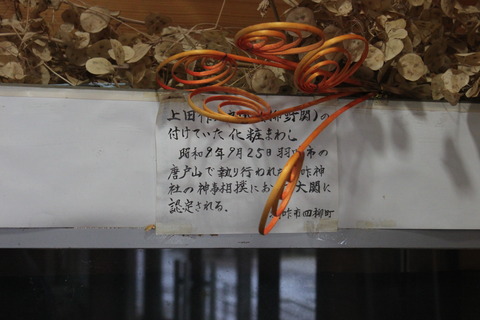 上田 関)の
付けていた化粧まわし
昭和9年9月25日羽 市の
唐戸山で執り行われた 咋神
社の神事相撲にお 大関に
認定される。
咋市四柳町